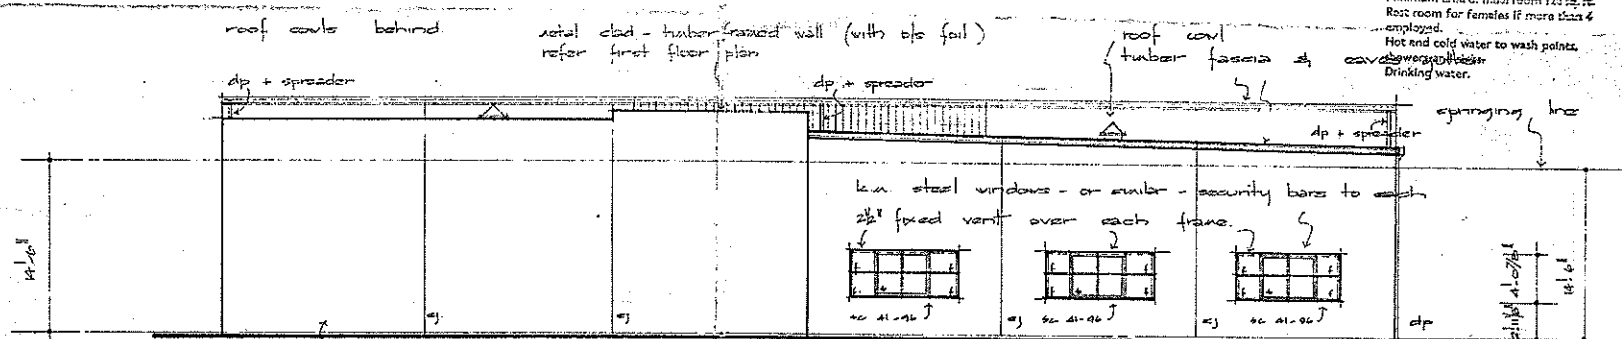 roof cowls behind.
metal clad - timber framed wall (with b/s foil)
refer first floor plan
roof cowl
timber fascia & eaves
Rest room for females if more than 4
employed.
Hot and cold water to wash points,
Drinking water.
dp + spreader
dp + spreader
springing line
dp + spreader
k.m. steel windows - or similar - security bars to each
2½" fixed vent over each frame.
14'-6"
f f f f f f
f. f f f f f
14'6"
cj cj cj cj dp